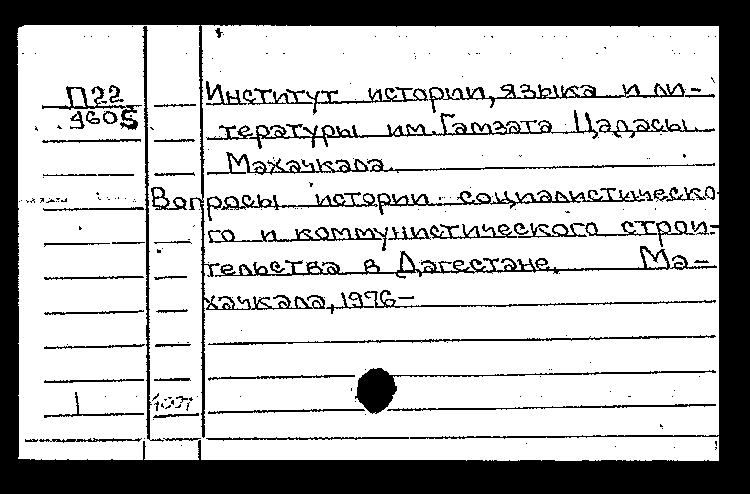 П22
Институт истории, языка и ли-
тературы им. Гамзата Цадасы.
Махачкала.
Вопросы истории социалистическо-
го и коммунистического строи-
тельства в Дагестане. Ма-
хачкала, 1976-
1